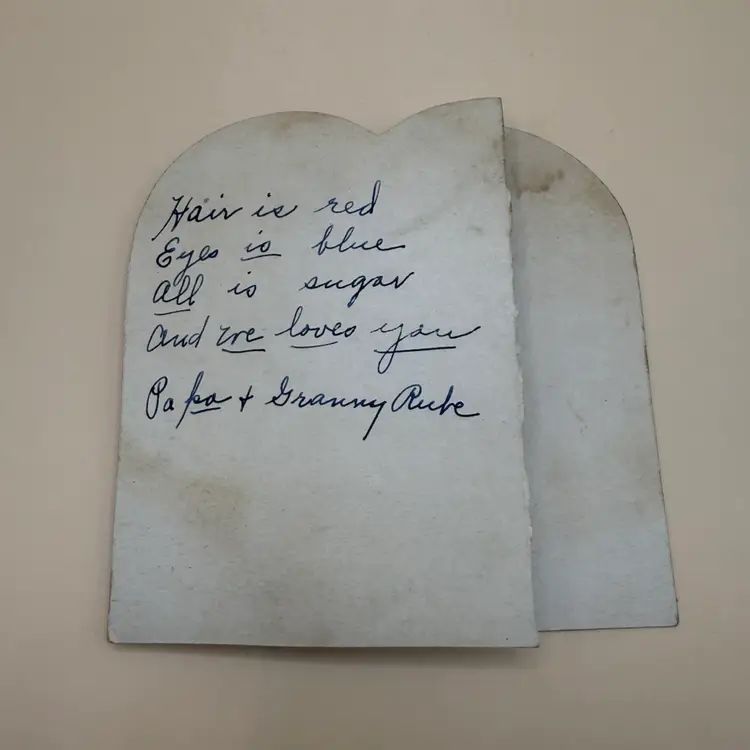 Hair is red
Eyes is blue
All is sugar
And we loves you
Papa + Granny Rube